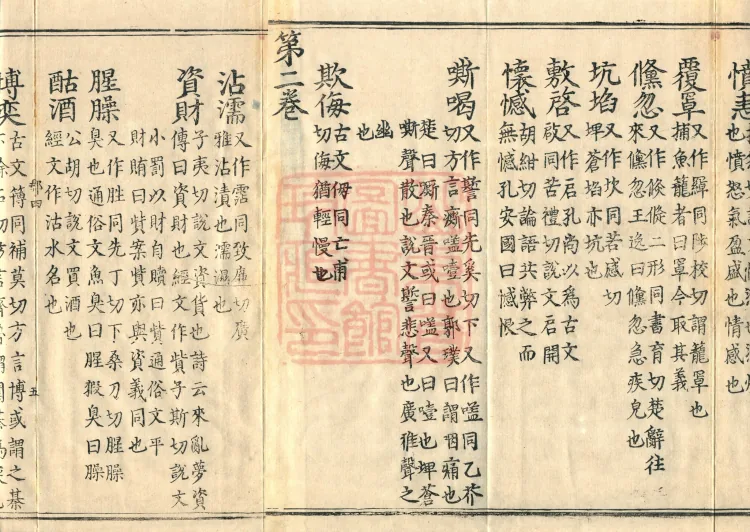 憤恚
也憤怒氣盈盛也情感也
覆罩又作羄同陟校切謂籠罩也
捕魚籠者曰罩今取其義
儵忽又作倏儵二形同書育切楚辭往
來儵忽王逸曰儵忽急疾皃也
坑埳又作坎同苦感切
埤蒼埳亦坑也
敷啓又作启孔尚以爲古文
啟同苦禮切說文启開
懷憾胡紺切論語共弊之而
無憾孔安國曰憾恨
嘶喝又作誓同先奚切下又作嗌同乙芥
切方言嗌噎也郭璞曰謂咽痛也
楚曰廝秦晉或曰嗌又曰噎也埤蒼
嘶聲散也說文誓悲聲也廣雅聲之
幽也
欺侮古文㑄同亡甫
切侮猶輕慢也
第二卷
沾濡又作霑同致廉切廣
雅沾漬也濡濕也
資財子夷切說文資貨也詩云來亂夢資
傳曰資財也經文作貲子斯切說文
小罰以財自贖曰貲通俗文平
財賄曰貲案貲亦與資義同也
腥臊又作胜同先丁切下桑刀切腥臊
臭也通俗文魚臭曰腥猳臭曰臊
酤酒公胡切說文買酒也
經文作沽水名也
五
博奕古文簙同補莫切方言博或謂之棊